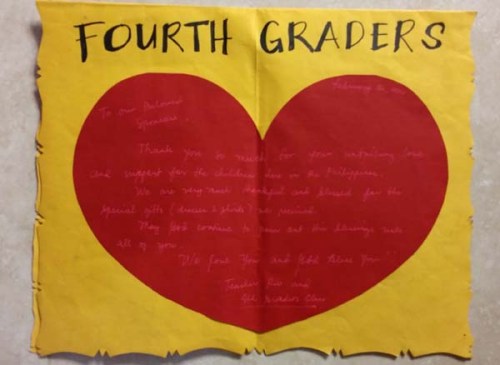 FOURTH GRADERS
February
To our Beloved
Sponsors,
Thank you so much for your unending love
and support for the children here in the Philippines.
We are very much thankful and blessed for the
special gifts (dresses & shirts) we received.
May God continue to pour out His blessings unto
all of you.
We love You and God bless You!
Teacher and
Gr. Graders Class